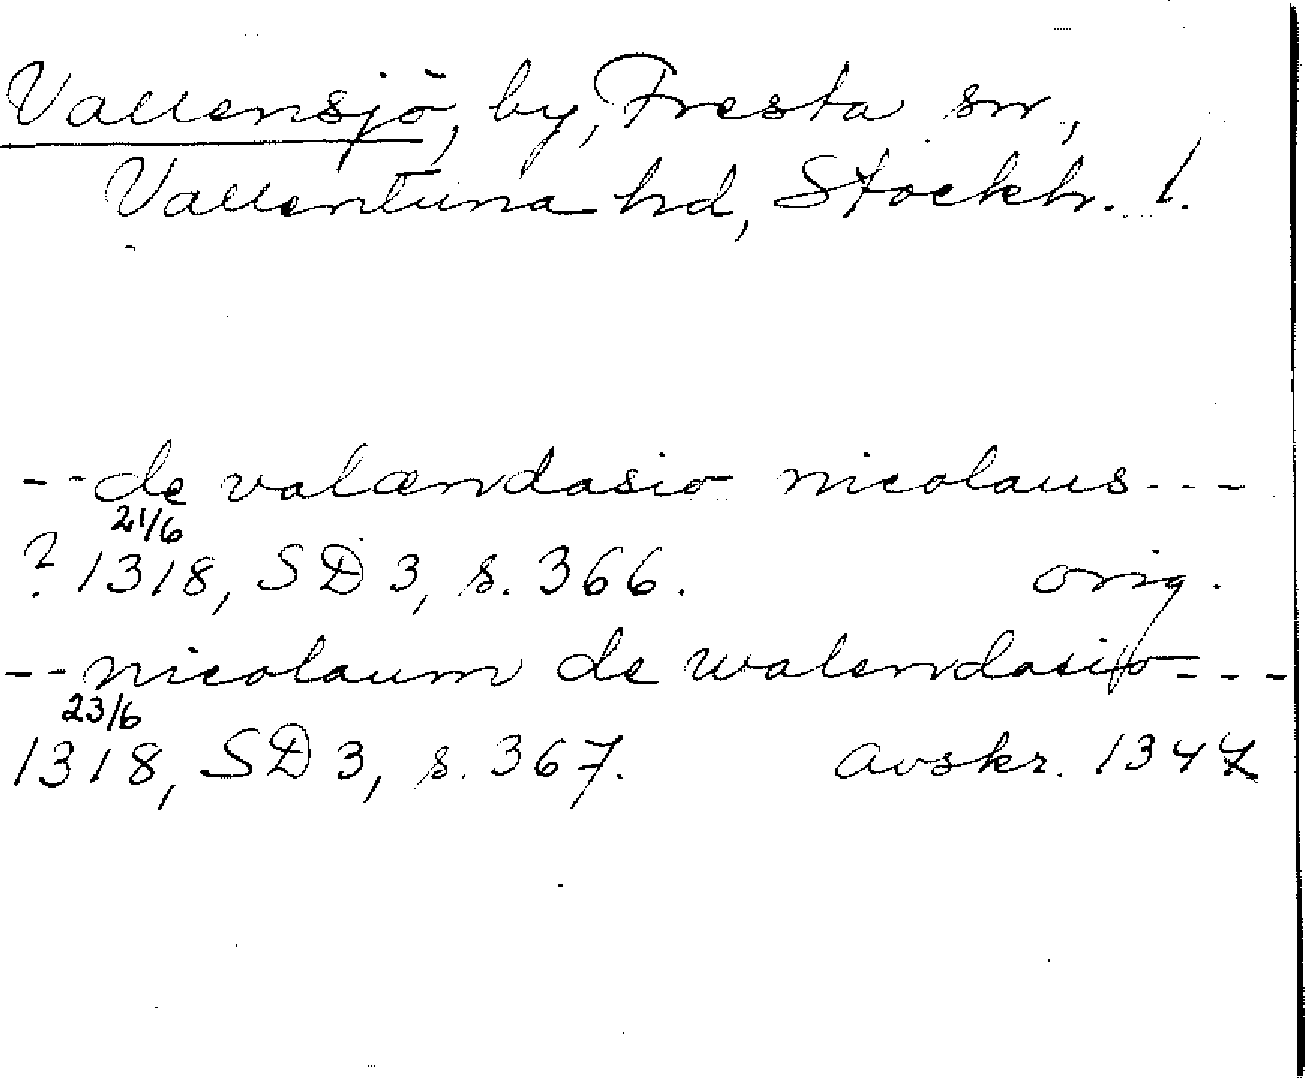 Vallensjö, by, Fresta sn,
Vallentuna hd, Stockh. l.
--de valændasio nicolaus---
21/6
? 1318, SD 3, s. 366. orig.
--nicolaum de walendasio---
23/6
1318, SD 3, s. 367. avskr. 1344